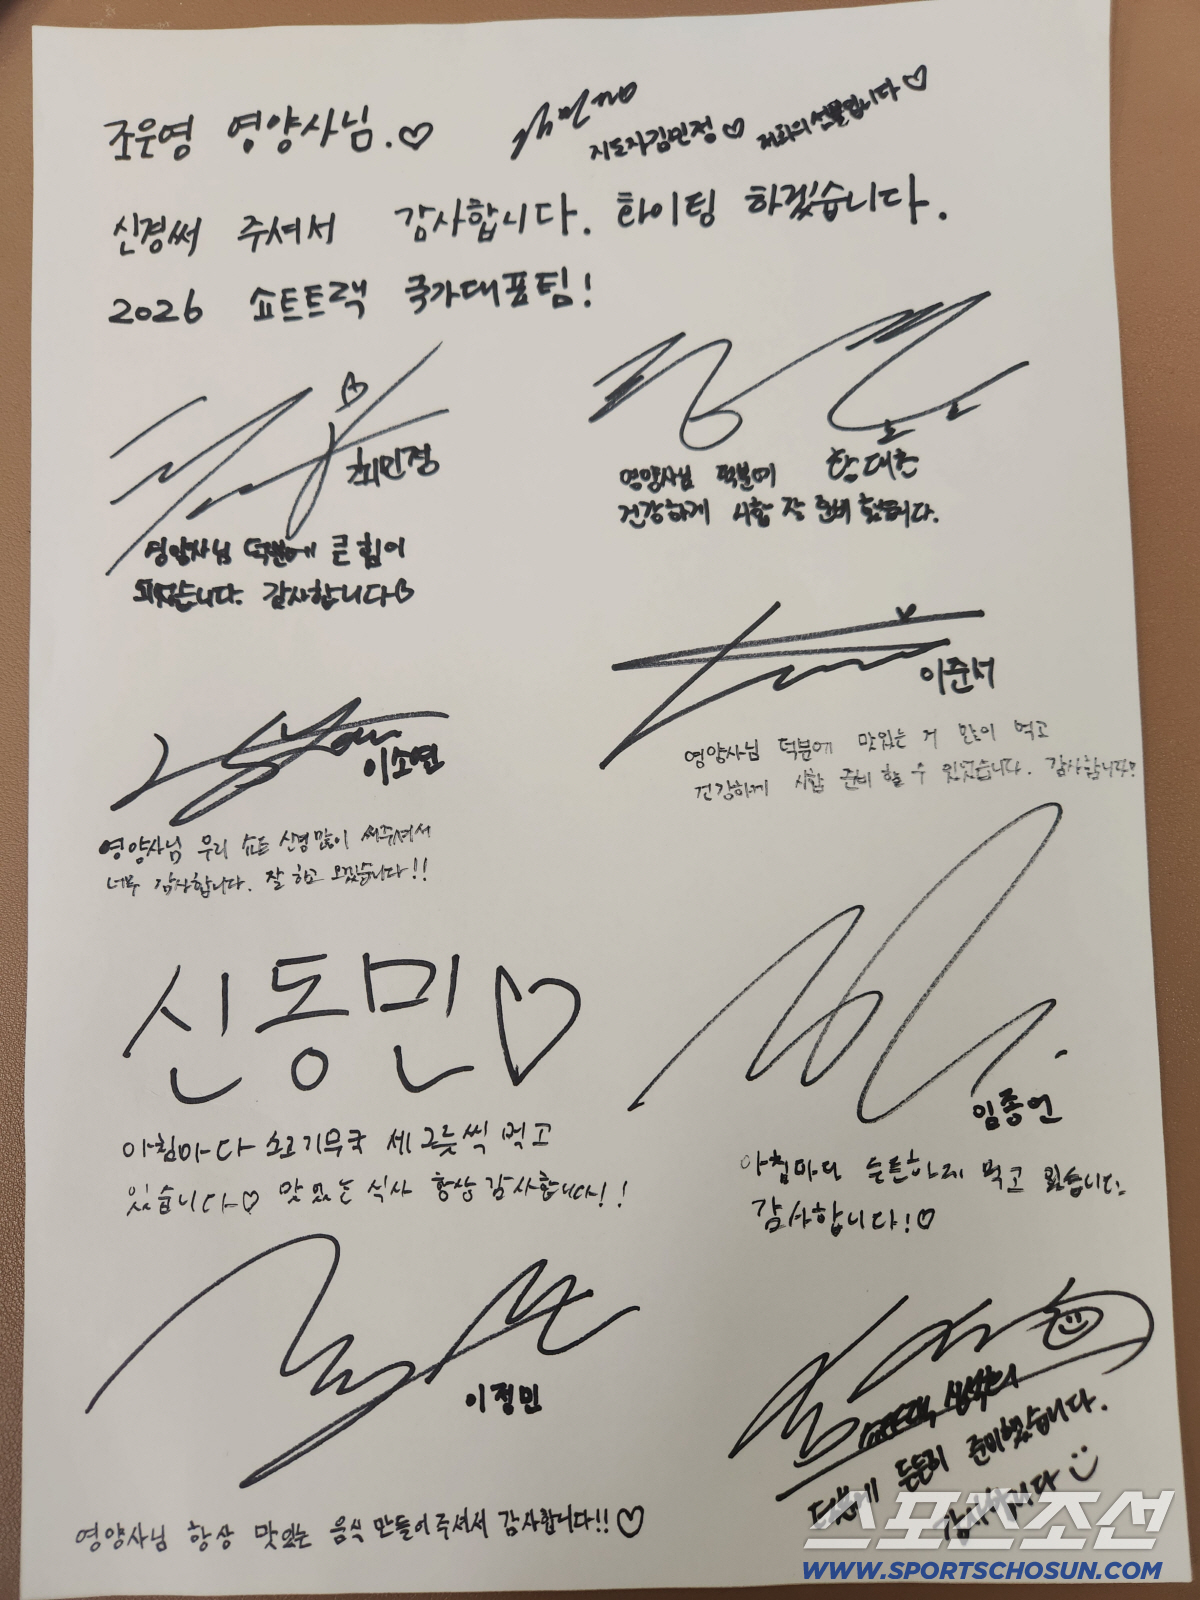 조운영 영양사님.♡
지도자김민정♡ 저희의 선물입니다♡
신경써 주셔서 감사합니다. 화이팅 하겠습니다.
2026 쇼트트랙 국가대표팀!
최민정
영양사님 덕분에 큰 힘이
되었습니다. 감사합니다♡
영양사님 덕분에
건강하게 시합 잘 준비 했습니다.
이소연
영양사님 우리 쇼트 신경많이 써주셔서
너무 감사합니다. 잘 하고 오겠습니다!!
이준서
영양사님 덕분에 맛있는 거 많이 먹고
건강하게 시합 준비 할 수 있었습니다. 감사합니다
신동민♡
아침마다 소고기무국 세 그릇씩 먹고
있습니다♡ 맛있는 식사 항상 감사합니다!!
임종언
아침마다 든든하게 먹고 있습니다.
감사합니다!♡
이정민
영양사님 항상 맛있는 음식 만들어 주셔서 감사합니다!!♡
쇼트트랙 심석희
덕분에 든든히 준비했습니다.
감사합니다
스포츠조선
WWW.SPORTSCHOSUN.COM